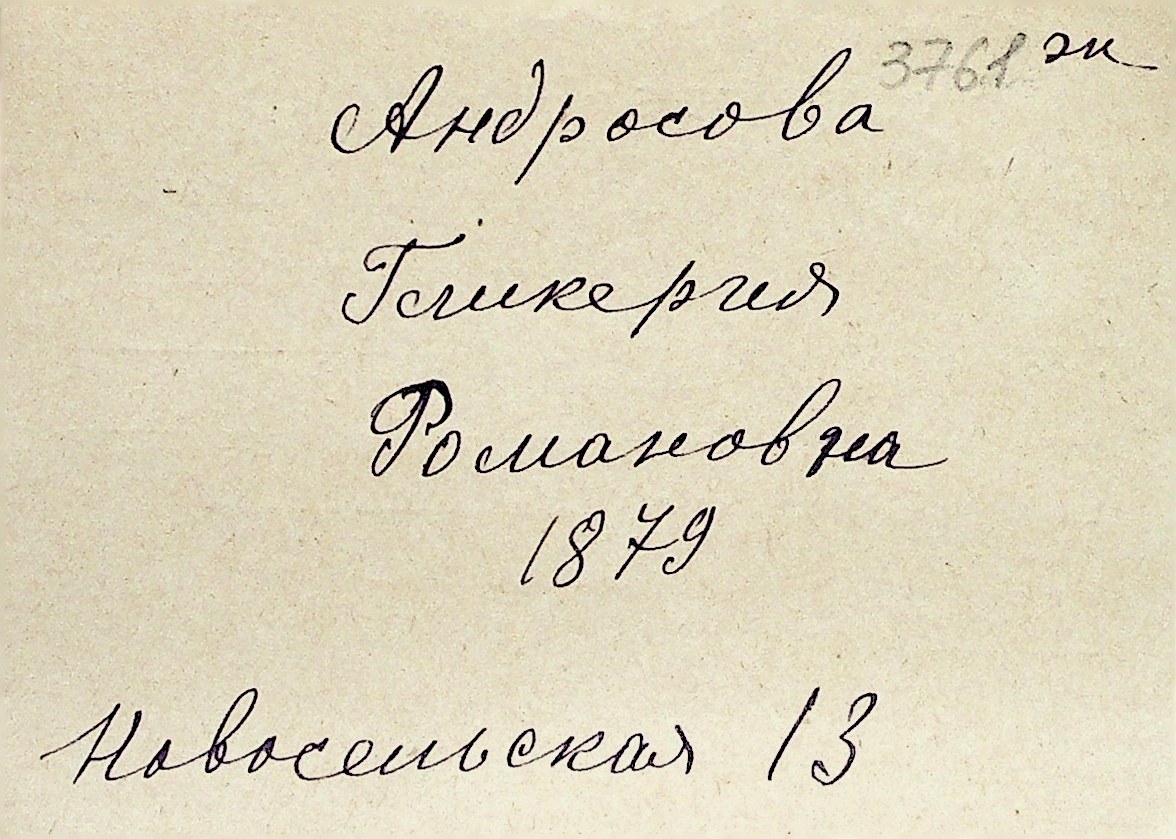 3761 эк
Андросова
Гликерия
Романовна
1879
Новосельская 13